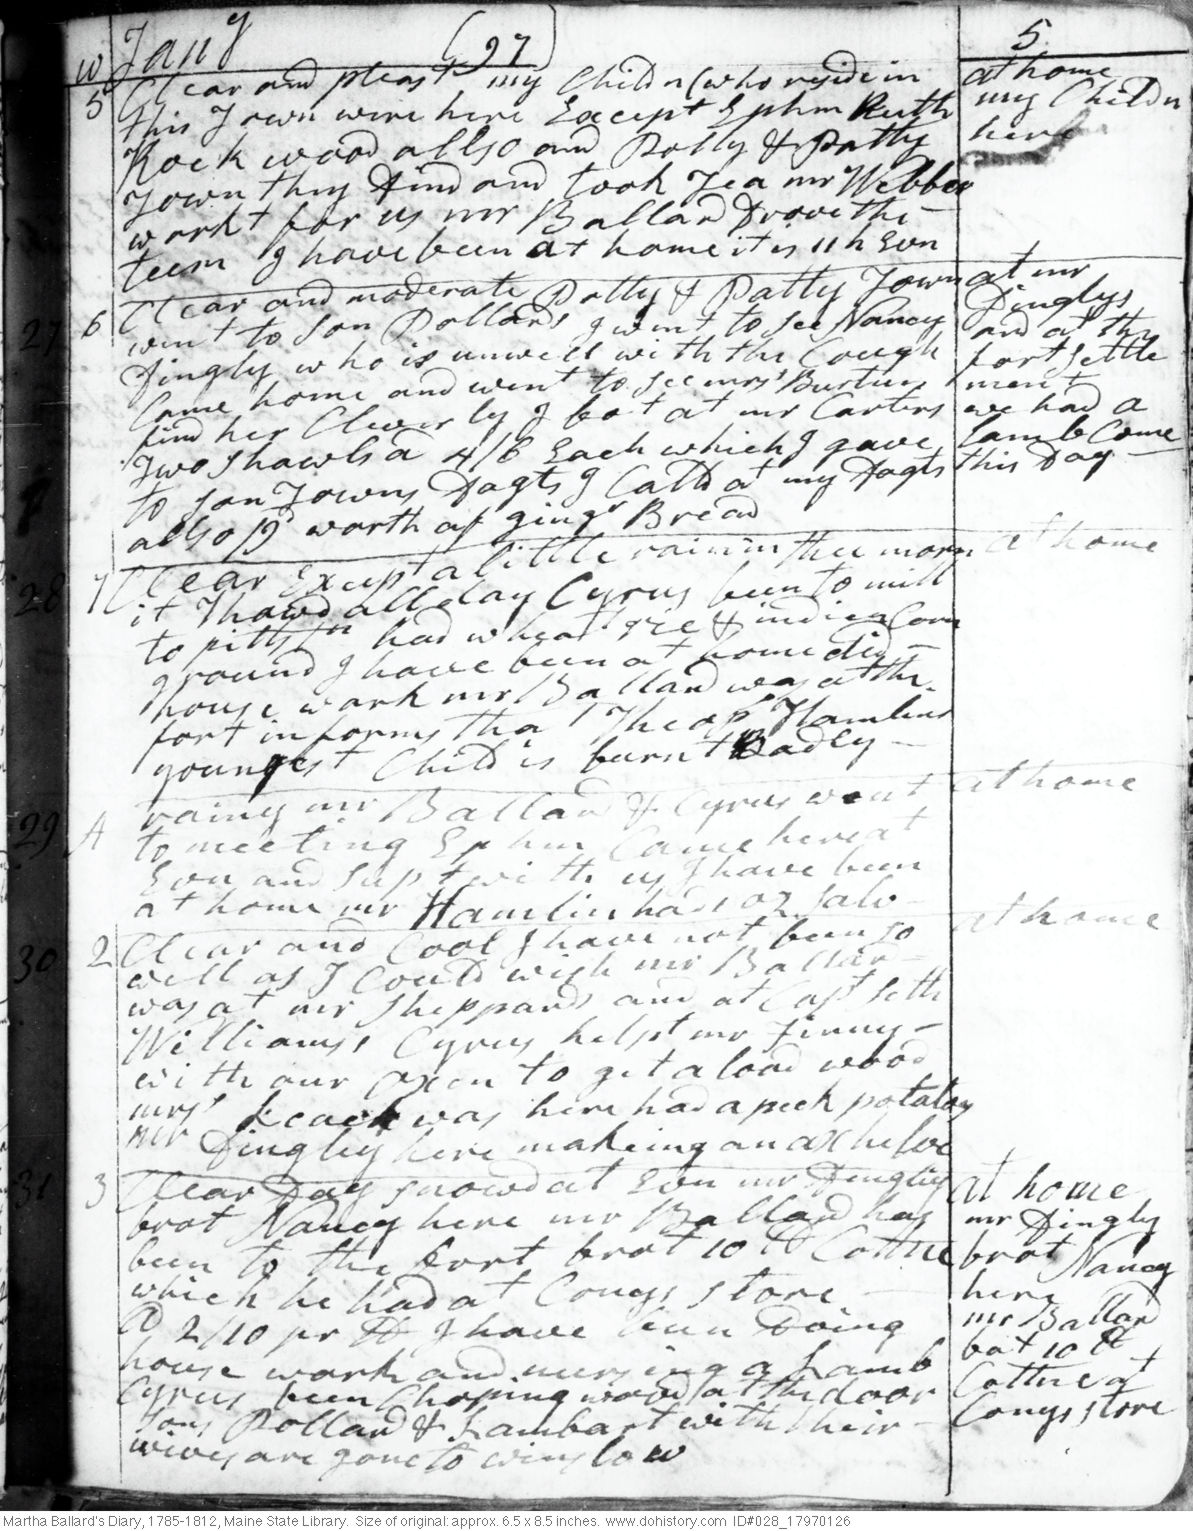 W Jany (97) 5
5 Clear and pleast my Childn (who reside in at home
this Town were here Except Ephm Ruth my Childn
Rockwood allso and Dolly & Patty here
Town they dind and took Tea mr Webber
workt for us mr Ballard Drove the
teem I have been at home it is 11 h Evn
27 6 Clear and moderate Dolly & Patty Town at mr
went to son Pollards I went to see Nancy Dinglys
Dingly who is unwell with the Cough and at the
Came home and went to see mrs Burtun fort settle
find her Cleverly I bot at mr Carters ment
Two shawls a 4/6 Each which I gave we had a
to son Towns Dagts I Calld at my Dagts lamb Come
allso 9d worth of gingr Bread this Day
28 7 Clear Except a little rain in thee morn at home
it Thawd all day Cyrus been to mill
to pittstn had wheat rie & indien Corn
ground I have been at home did
house work mr Ballard was at the
fort informs that Theops Hamlins
youngest Child is burnt Badly
29 A rainy mr Ballard & Cyrus went at home
to meeting Ephm Came here at
Evn and supt with us I have been
at home mr Hamlin had 1 oz salv
30 2 Clear and Cool I have not been so at home
well as I Could wish mr Ballard
was at mr Sheppards and at Capt Seth
Williams's Cyrus helpt mr Finny
with our oxen to get a load wood
mrs was here had a peck potatoes
mr Dingley here makeing an ax helve
31 3 Clear Day snowd at Evn mr Dingley at home
brot Nancy here mr Ballard has mr Dingly
been to the fort brot 10 lb Cottne brot Nancy
which he had at Conys store here
@ 2/10 pr lb I have been Doing mr Ballard
house work and nursing a Lamb bot 10 lb
Cyrus been Choping wood at the door Cottne at
sons Pollard & Lambart with their Conys store
wives are gone to winslow
Martha Ballard's Diary, 1785-1812, Maine State Library. Size of original: approx. 6.5 x 8.5 inches. www.dohistory.com ID#028_17970126